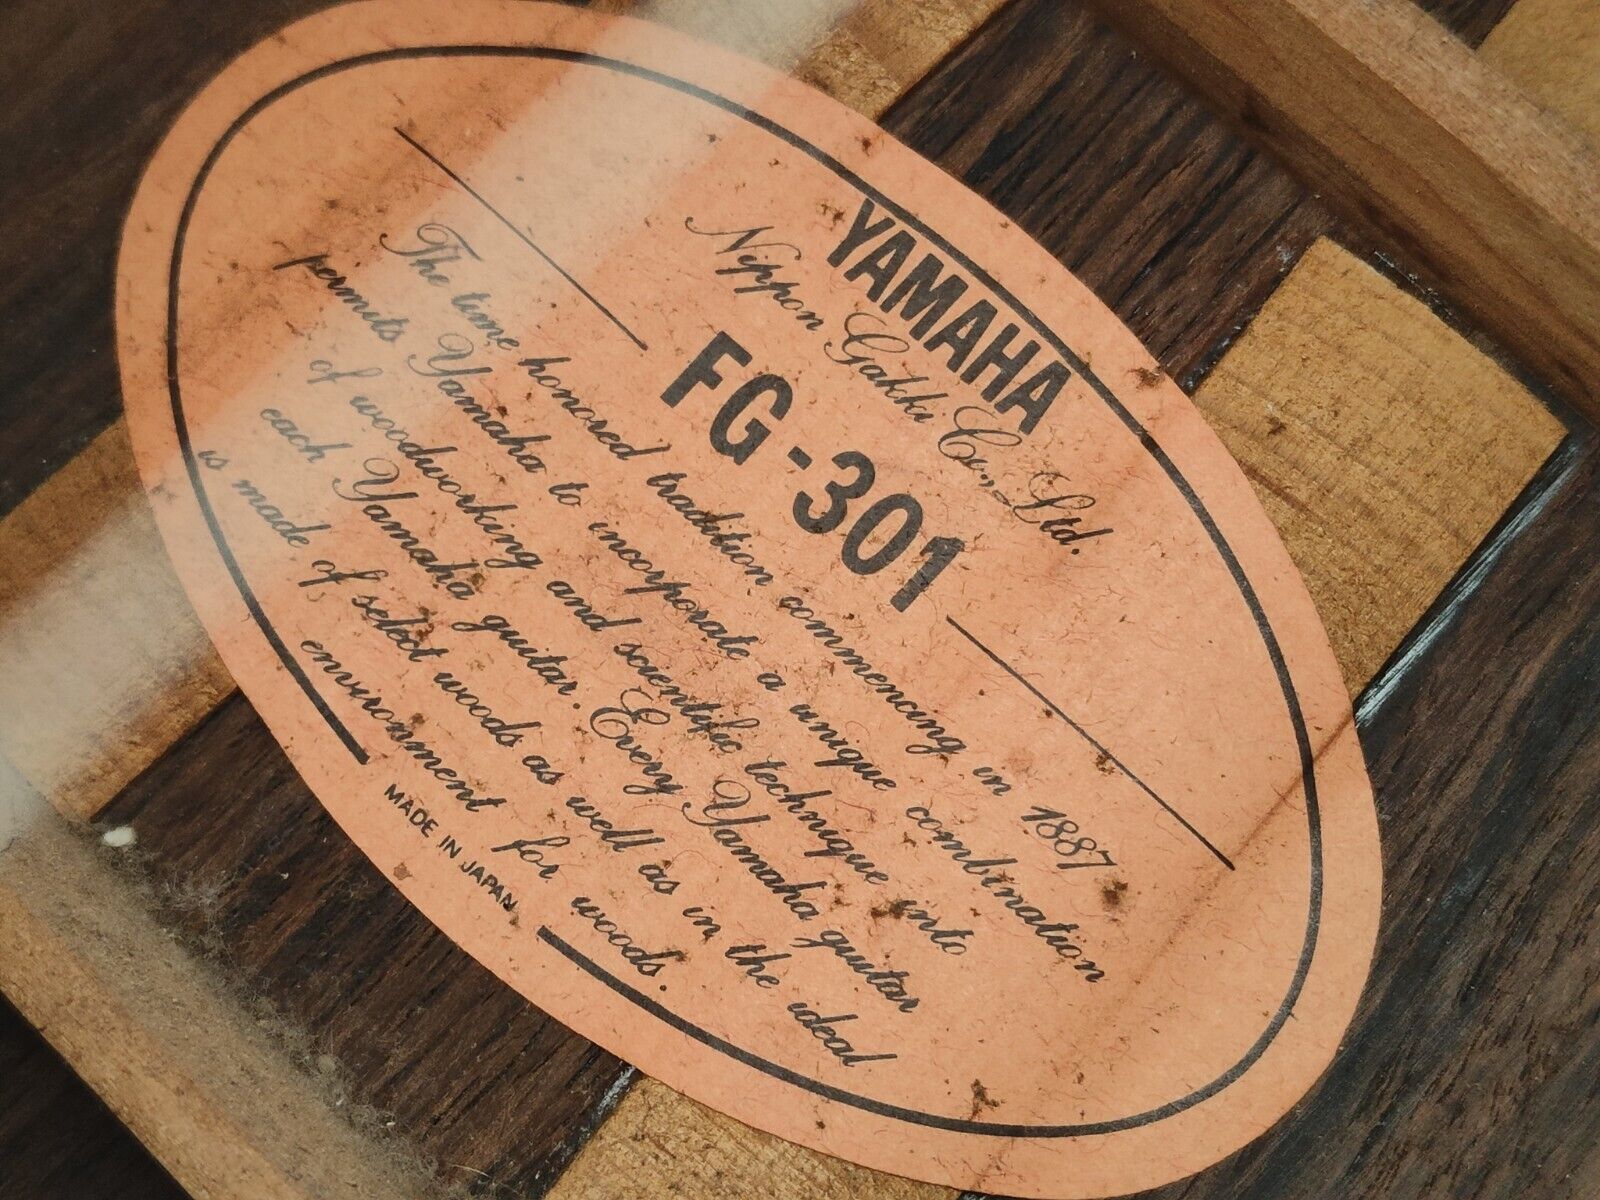 YAMAHA
Nippon Gakki Co., Ltd.
FG-301
The time honored tradition commencing in 1887
permits Yamaha to incorporate a unique combination
of woodworking and scientific technique into
each Yamaha guitar. Every Yamaha guitar
is made of select woods as well as in the ideal
environment for woods.
MADE IN JAPAN